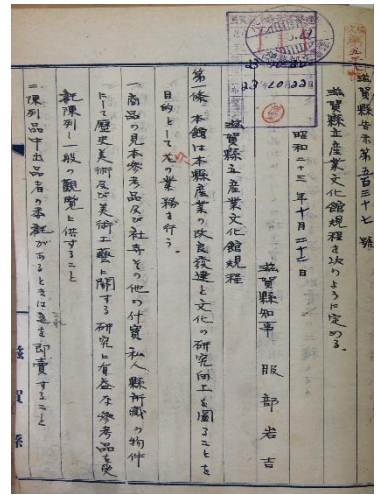 滋賀縣告示第五百三十七號
滋賀縣立産業文化館規程を次のように定める。
昭和二十三年十月二十二日
滋賀縣知事 服部岩吉
滋賀縣立産業文化館規程
第一條 本館は本縣産業の改良發達と文化の研究向上を圖ることを
目的として次の業務を行う。
一、商品の見本參考品及び社寺その他の什寶私人縣所藏の物件
にして歴史美術及び美術工藝に關する研究に有益な參考品を受
託陳列一般の觀覽に供すること
二、陳列品中出品者の委託があるときは之を即賣すること
滋賀縣
23.10.22